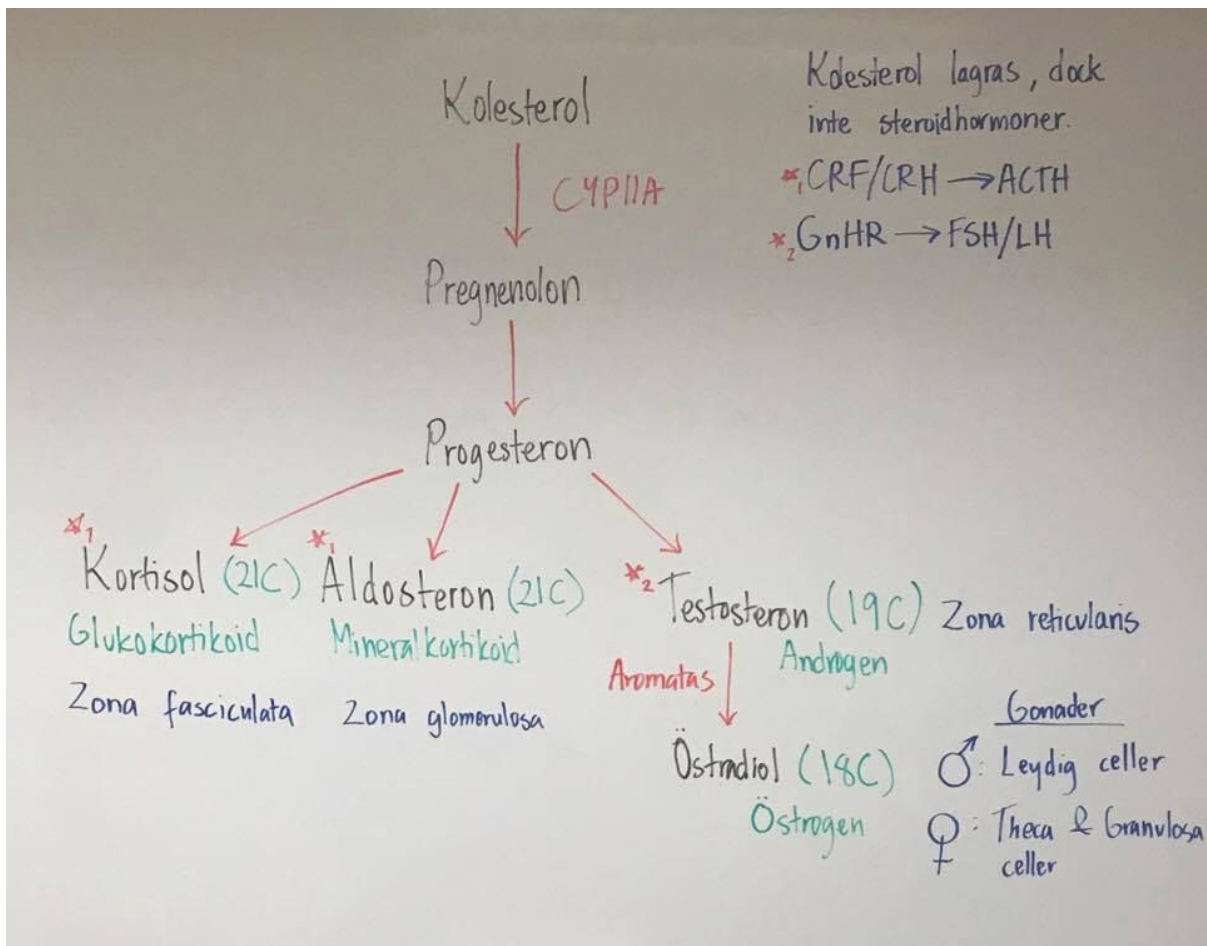 Kolesterol
CYP11A
Pregnenolon
Progesteron
Kolesterol lagras, dock
inte steroidhormoner.
*1 CRF/CRH → ACTH
*2 GnHR → FSH/LH
*1 Kortisol (21C)
Glukokortikoid
Zona fasciculata
*1 Aldosteron (21C)
Mineralkortikoid
Zona glomerulosa
*2 Testosteron (19C) Zona reticularis
Androgen
Aromatas
Östradiol (18C)
Östrogen
Gonader
♂: Leydig celler
♀: Theca & Granulosa
celler